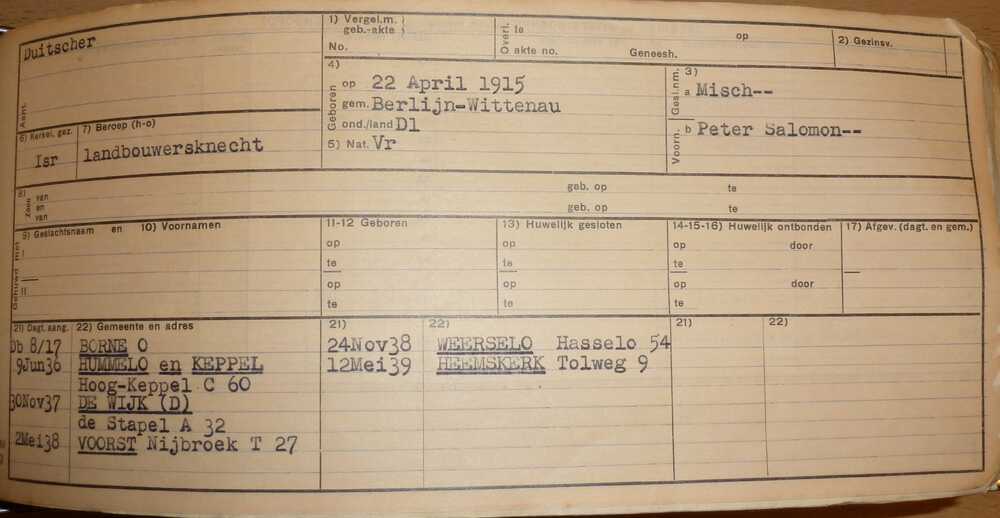 Duitscher
Aant.
1) Vergel.m.
geb.-akte
No.
Overl. te op
akte no. Geneesh.
2) Gezinsv.
4)
Geboren
op 22 April 1915
gem. Berlijn-Wittenau
ond./land Dl
5) Nat. Vr
3)
Gesl.nm. a Misch--
Voorn. b Peter Salomon--
6) Kerkel. gez.
Isr
7) Beroep (h-o)
landbouwersknecht
8)
Zoon van geb. op te
en
van geb. op te
Gehuwd met
9) Geslachtsnaam en 10) Voornamen
I
II
11-12 Geboren
op
te
op
te
13) Huwelijk gesloten
op
te
op
te
14-15-16) Huwelijk ontbonden
op door
te
op door
te
17) Afgev. (dagt. en gem.)
21) Dagt. aang. 22) Gemeente en adres
Db 8/17 BORNE O
9Jun36 HUMMELO en KEPPEL
Hoog-Keppel C 60
30Nov37 DE WIJK (D)
de Stapel A 32
2Mei38 VOORST Nijbroek T 27
21) 22)
24Nov38 WEERSELO Hasselo 54
12Mei39 HEEMSKERK Tolweg 9
21) 22)